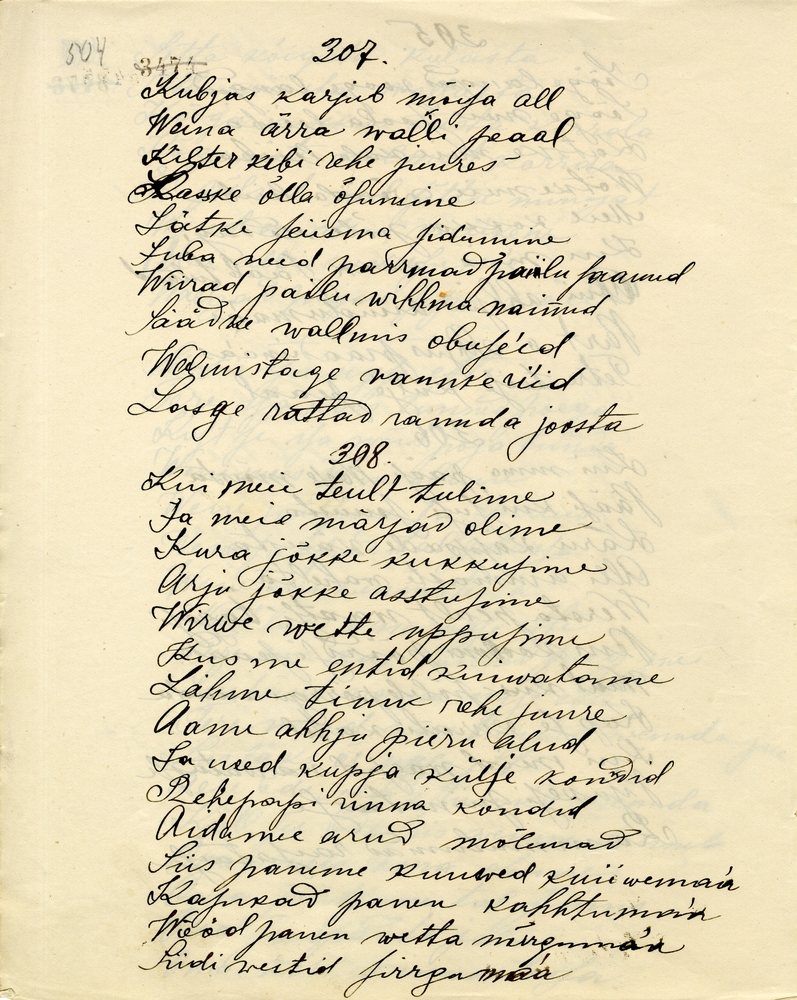 504
3474
307.
Kubjas karjub mõisa all
Weina ärra walli peaal
Kilter kibi rehe juures
Laske õlla õsumine
Jätke seisma sidumine
Juba need parrmad pailu saanud
Wiirad pailu wihhma nainud
Säädke wallmis obuse'id
Walmistage vannkerüid
Lasge rattad rannda joosta
308.
Kui meie teult tulime
Ja meie märjad olime
Kura jõkke kukkusime
Arju jõkke asstusime
Wirwe wette uppusime
Kus me entid kuiwatame
Lähme tinuv rehe juure
Aame ahhju pieru alud
Ja need kupja külje kondid
Rehepapi rinna kondid
Aidamee arud mõlemad
Siis paneme kuuwed kuiiwema'a
Kasukad panen kahhtuma'a
Wööd panen wetta nirguma'a
Siidi westid sirrguma'a